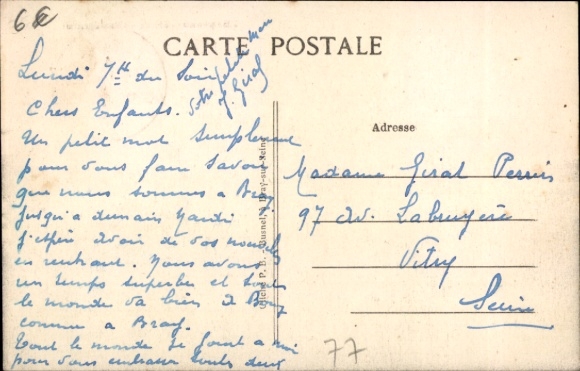 6€
CARTE POSTALE
Lundi 7H du Soir
Chers Enfants.
Un petit mot simplement
pour vous faire savoir
que nous sommes a Bray
jusqu'a demain Mardi
j'espère avoir de vos nouvelles
en rentrant. Nous avons
un temps superbe et tout
le monde va bien a Bray
comme a Bray.
Tout le monde se joint a moi
pour vous embrasser toutes deux
Votre petite maman
J. Giral
Adresse
Madame Giral Perrin
97 av. Labruyère
Vitry
Seine
Bray-sur-Seine
77